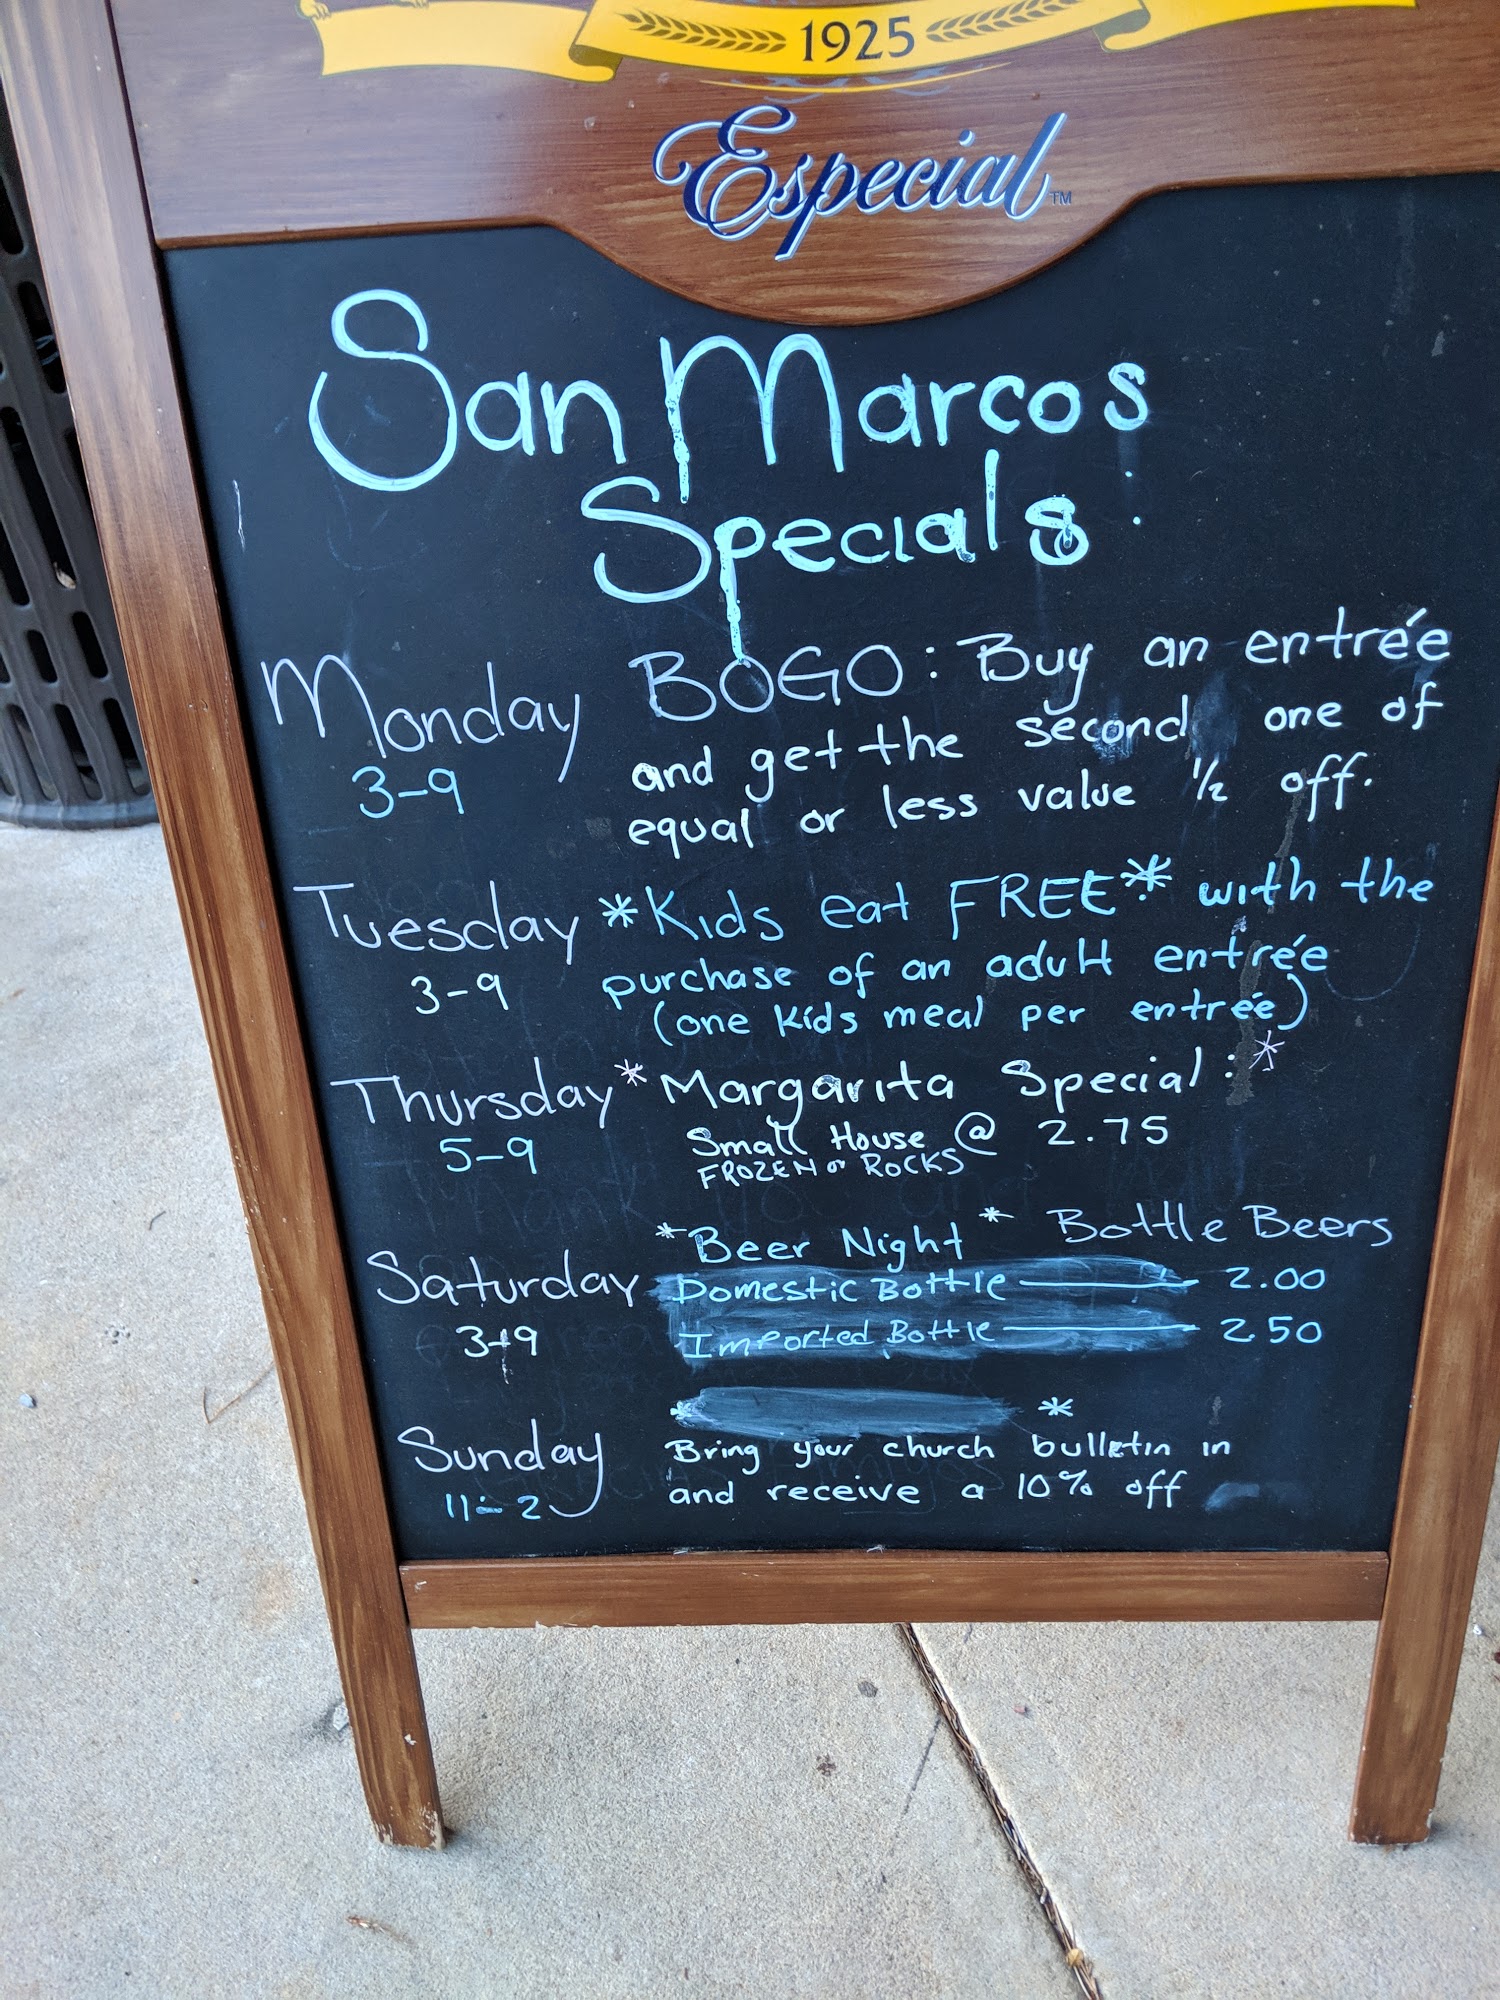 1925
Especial™
San Marcos
Specials
Monday
3-9
BOGO: Buy an entrée
and get the second one of
equal or less value ½ off.
Tuesday
3-9
*Kids eat FREE* with the
purchase of an adult entrée
(one kids meal per entrée)
Thursday
5-9
*Margarita Special:*
Small House @ 2.75
FROZEN or ROCKS
Saturday
3-9
*Beer Night* Bottle Beers
Domestic Bottle — 2.00
Imported Bottle — 2.50
Sunday
11-2
* *
Bring your church bulletin in
and receive a 10% off